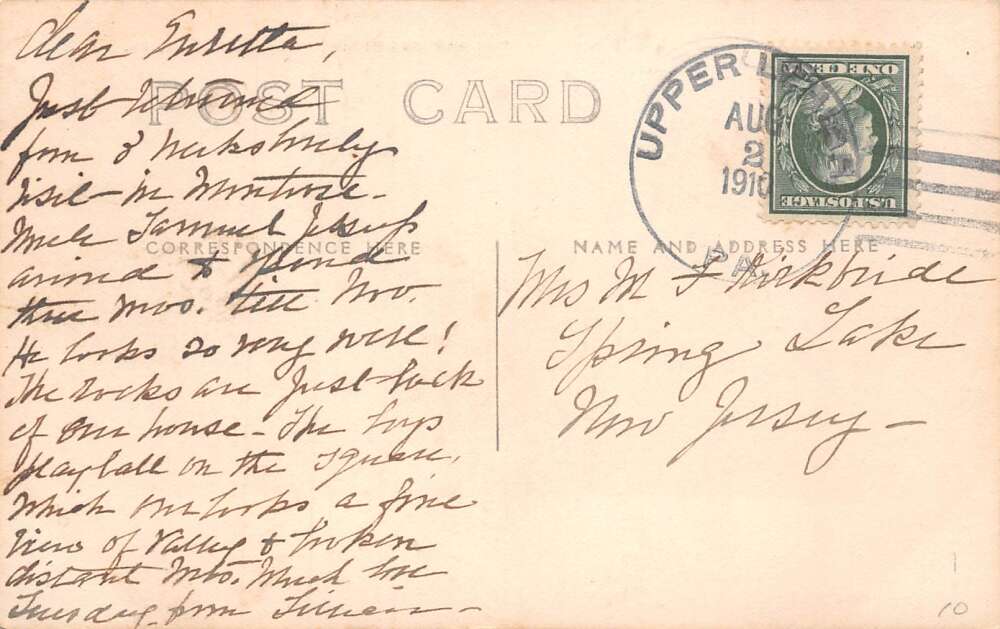 Dear
POST CARD
Just returned
from 3 weeks lovely
visit in Montrose -
Uncle Samuel Jessup
arrived & spend
three mos. till Nov.
He looks so very well!
The rocks are just back
of our house - The boys
play ball on the square,
which overlooks a fine
view of valley & broken
distant Mts. Much love
Tuesday from Lillian -
CORRESPONDENCE HERE
NAME AND ADDRESS HERE
UPPER LEHIGH
AUG
2
1910
PA.
ONE CENT
U.S. POSTAGE
Mrs M F Kirkbride
Spring Lake
New Jersey -
10